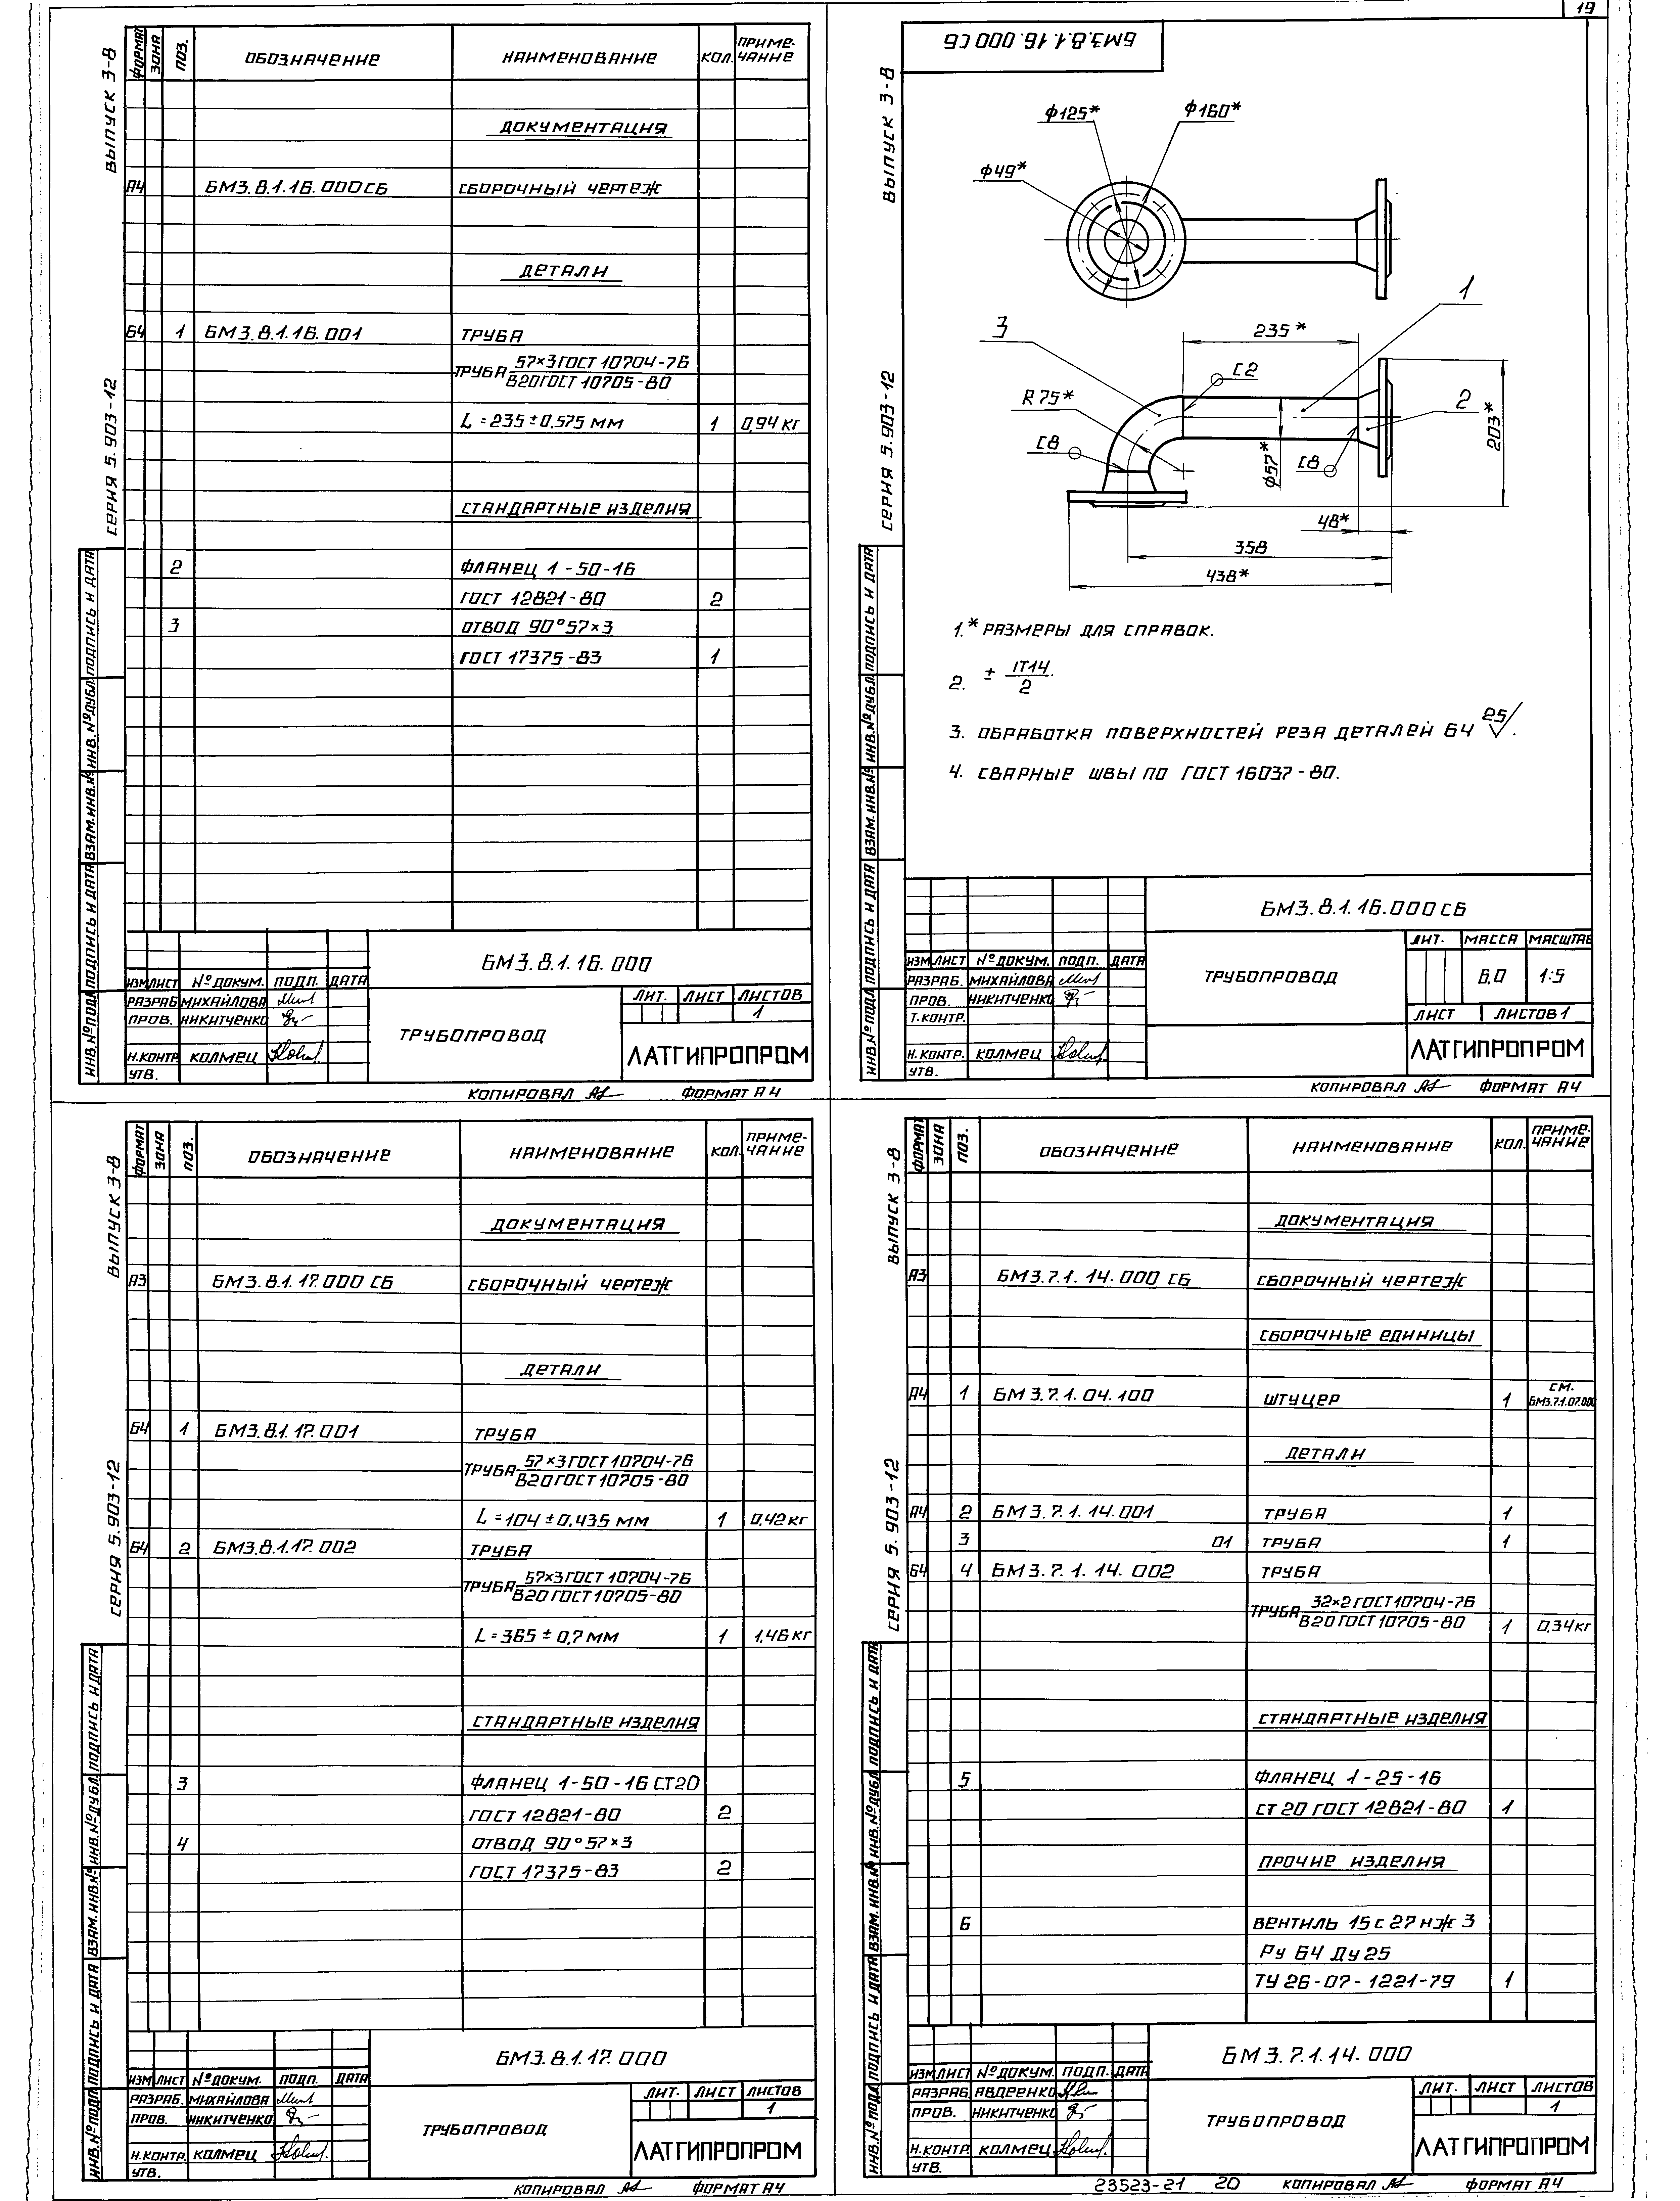 19
ВЫПУСК 3-8
СЕРИЯ 5.903-12
ФОРМАТ ЗОНА ПОЗ. ОБОЗНАЧЕНИЕ НАИМЕНОВАНИЕ КОЛ. ПРИМЕ-
ЧАНИЕ
ДОКУМЕНТАЦИЯ
А4 БМ3.8.1.16.000СБ СБОРОЧНЫЙ ЧЕРТЕЖ
ДЕТАЛИ
Б4 1 БМ3.8.1.16.001 ТРУБА
ТРУБА 57×3 ГОСТ 10704-76
В20 ГОСТ 10705-80
L=235±0.575 ММ 1 0,94 КГ
СТАНДАРТНЫЕ ИЗДЕЛИЯ
2 ФЛАНЕЦ 1-50-16
ГОСТ 12821-80 2
3 ОТВОД 90°57×3
ГОСТ 17375-83 1
ПОДПИСЬ И ДАТА
ИНВ.№ДУБЛ.
ВЗАМ.ИНВ.№
ПОДПИСЬ И ДАТА
ИНВ.№ПОДЛ
БМ3.8.1.16.000
ИЗМ ЛИСТ №ДОКУМ. ПОДП. ДАТА
РАЗРАБ. МИХАЙЛОВА
ПРОВ. НИКИТЧЕНКО
Н.КОНТР. КОЛМЕЦ
УТВ.
ТРУБОПРОВОД
ЛИТ. ЛИСТ ЛИСТОВ
1
ЛАТГИПРОПРОМ
КОПИРОВАЛ ФОРМАТ А4
БМ3.8.1.16.000СБ
ВЫПУСК 3-8
СЕРИЯ 5.903-12
ф125* ф160*
ф49*
1
3
235*
С2
R75*
2
203*
С8
ф57*
С8
48*
358
438*
1.* РАЗМЕРЫ ДЛЯ СПРАВОК.
2. ± IT14/2.
3. ОБРАБОТКА ПОВЕРХНОСТЕЙ РЕЗА ДЕТАЛЕЙ Б4 25/.
4. СВАРНЫЕ ШВЫ ПО ГОСТ 16037-80.
ПОДПИСЬ И ДАТА
ИНВ.№ДУБЛ
ВЗАМ.ИНВ.№
ПОДПИСЬ И ДАТА
ИНВ.№ПОДЛ
БМ3.8.1.16.000СБ
ИЗМ ЛИСТ №ДОКУМ. ПОДП. ДАТА
РАЗРАБ. МИХАЙЛОВА
ПРОВ. НИКИТЧЕНКО
Т.КОНТР.
Н.КОНТР. КОЛМЕЦ
УТВ.
ТРУБОПРОВОД
ЛИТ. МАССА МАСШТАБ
6,0 1:5
ЛИСТ ЛИСТОВ 1
ЛАТГИПРОПРОМ
КОПИРОВАЛ ФОРМАТ А4
ВЫПУСК 3-8
СЕРИЯ 5.903-12
ФОРМАТ ЗОНА ПОЗ. ОБОЗНАЧЕНИЕ НАИМЕНОВАНИЕ КОЛ. ПРИМЕ-
ЧАНИЕ
ДОКУМЕНТАЦИЯ
А3 БМ3.8.1.17.000 СБ СБОРОЧНЫЙ ЧЕРТЕЖ
ДЕТАЛИ
Б4 1 БМ3.8.1.17.001 ТРУБА
ТРУБА 57×3 ГОСТ 10704-76
В20 ГОСТ 10705-80
L=104±0,435 ММ 1 0,42 КГ
Б4 2 БМ3.8.1.17.002 ТРУБА
ТРУБА 57×3 ГОСТ 10704-76
В20 ГОСТ 10705-80
L=365±0,7 ММ 1 1,46 КГ
СТАНДАРТНЫЕ ИЗДЕЛИЯ
3 ФЛАНЕЦ 1-50-16 СТ20
ГОСТ 12821-80 2
4 ОТВОД 90°57×3
ГОСТ 17375-83 2
ПОДПИСЬ И ДАТА
ИНВ.№ДУБЛ.
ВЗАМ.ИНВ.№
ПОДПИСЬ И ДАТА
ИНВ.№ПОДЛ
БМ3.8.1.17.000
ИЗМ ЛИСТ №ДОКУМ. ПОДП. ДАТА
РАЗРАБ. МИХАЙЛОВА
ПРОВ. НИКИТЧЕНКО
Н.КОНТР. КОЛМЕЦ
УТВ.
ТРУБОПРОВОД
ЛИТ. ЛИСТ ЛИСТОВ
1
ЛАТГИПРОПРОМ
КОПИРОВАЛ ФОРМАТ А4
ВЫПУСК 3-8
СЕРИЯ 5.903-12
ФОРМАТ ЗОНА ПОЗ. ОБОЗНАЧЕНИЕ НАИМЕНОВАНИЕ КОЛ. ПРИМЕ-
ЧАНИЕ
ДОКУМЕНТАЦИЯ
А3 БМ3.7.1.14.000 СБ СБОРОЧНЫЙ ЧЕРТЕЖ
СБОРОЧНЫЕ ЕДИНИЦЫ
А4 1 БМ3.7.1.04.100 ШТУЦЕР 1 СМ.
БМ3.7.1.07.000
ДЕТАЛИ
А4 2 БМ3.7.1.14.001 ТРУБА 1
3 01 ТРУБА 1
Б4 4 БМ3.7.1.14.002 ТРУБА
ТРУБА 32×2 ГОСТ 10704-76
В20 ГОСТ 10705-80 1 0,34 КГ
СТАНДАРТНЫЕ ИЗДЕЛИЯ
5 ФЛАНЕЦ 1-25-16
СТ 20 ГОСТ 12821-80 1
ПРОЧИЕ ИЗДЕЛИЯ
6 ВЕНТИЛЬ 15с27нж3
Ру 64 Ду 25
ТУ 26-07-1221-79 1
ПОДПИСЬ И ДАТА
ИНВ.№ДУБЛ
ВЗАМ.ИНВ.№
ПОДПИСЬ И ДАТА
ИНВ.№ПОДЛ
БМ3.7.1.14.000
ИЗМ ЛИСТ №ДОКУМ. ПОДП. ДАТА
РАЗРАБ. АВДЕЕНКО
ПРОВ. НИКИТЧЕНКО
Н.КОНТР. КОЛМЕЦ
УТВ.
ТРУБОПРОВОД
ЛИТ. ЛИСТ ЛИСТОВ
1
ЛАТГИПРОПРОМ
23523-21 20 КОПИРОВАЛ ФОРМАТ А4